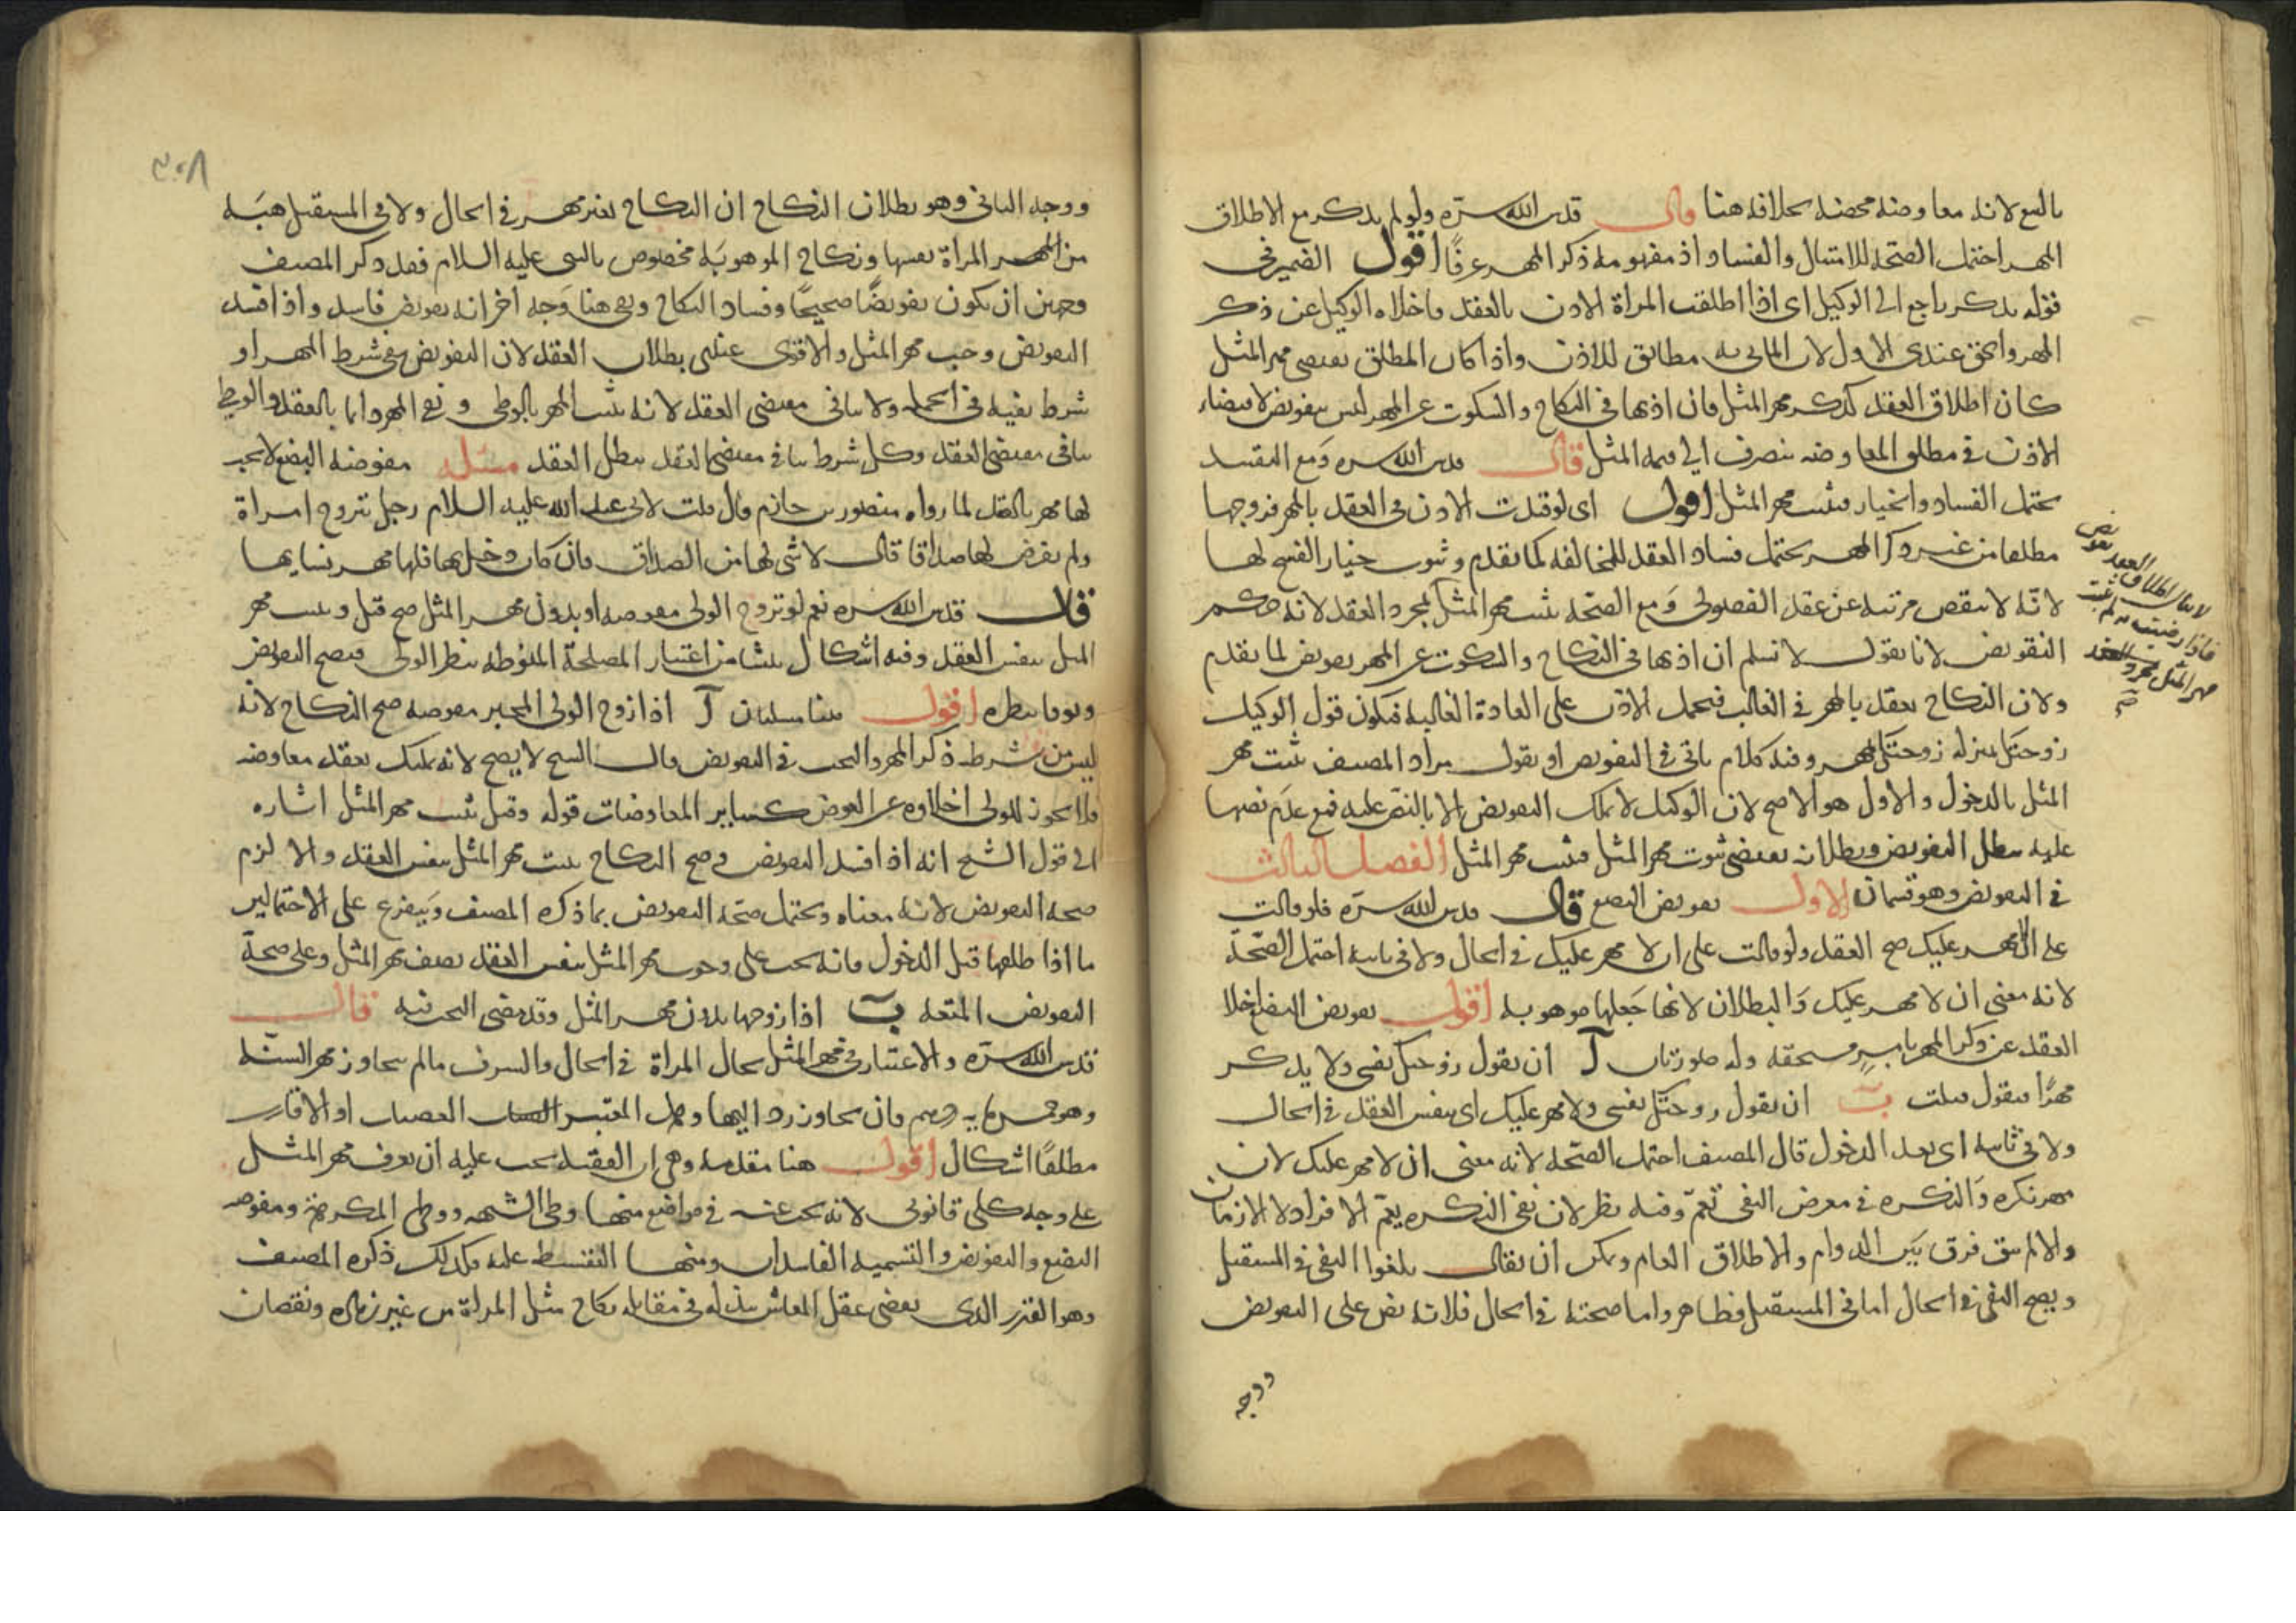 بالبيع لانه معاوضة محضة بخلافه هنا قال قدس الله سره ولو لم يذكر مع الاطلاق
المهر احتمل الصحة للامتثال والفساد اذ مفهومه ذكر المهر عرفًا اقول الضمير في
قوله يذكر راجع الى الوكيل اى اذا اطلقت المراة الاذن بالعقد فاخلاه الوكيل عن ذكر
المهر والحق عندى الاول لان الماتى به مطابق للاذن واذا كان المطلق يقتضى مهر المثل
كان اطلاق العقد كذكر مهر المثل فان اذنها فى النكاح والسكوت عن المهر ليس بتفويض لاقتضاء
الاذن فى مطلق المعاوضه ينصرف الى قيمه المثل قال قدس الله سره ومع التقييد
يحتمل الفساد والخيار فيثبت مهر المثل اقول اى لو قيدت الاذن فى العقد بالمهر فزوجها
مطلقا من غير ذكر المهر يحتمل فساد العقد للمخالفه كما تقدم وثبوت خيار الفسخ لها
لانه لا ينقص مرتبه عن عقد الفضولى ومع الصحه يثبت مهر المثل بمجرد العقد لانه حكم
التفويض لانا نقول لا نسلم ان اذنها فى النكاح والسكوت عن المهر تفويض لما تقدم
ولان النكاح يعقد بالمهر فى الغالب فيحمل الاذن على العادة الغالبه فيكون قول الوكيل
زوجتك بمنزله زوجتك بالمهر وفيه كلام ياتى فى التفويض او نقول مراد المصنف يثبت مهر
المثل بالدخول والاول هو الاصح لان الوكيل لا يملك التفويض الا بالنص عليه فمع عدم نصها
عليه يبطل التفويض وبطلانه يقتضى ثبوت مهر المثل فيثبت مهر المثل الفصل الثالث
فى التفويض وهو قسمان الاول تفويض البضع قال قدس الله سره فلو قالت
على ان لا مهر عليك صح العقد ولو قالت على ان لا مهر عليك فى الحال ولا فى ثانيه احتمل الصحة
لانه معنى ان لا مهر عليك والبطلان لانها جعلتها موهوبه اقول تفويض البضع اخلا
العقد عن ذكر المهر بامر مستحقه وله صورتان آ ان تقول زوجتك نفسى ولا يذكر
مهرًا فيقول قبلت ب ان تقول زوجتك نفسى ولا مهر عليك اى بنفس العقد فى الحال
ولا فى ثانيه اى بعد الدخول قال المصنف احتمل الصحه لانه معنى ان لا مهر عليك لان
مهر نكره والنكره فى معرض النفى تعم وفيه نظر لان نفى النكره يعم الافراد لا الازمان
والا لم يبق فرق بين الدوام والاطلاق العام ويمكن ان يقال يلغوا النفى فى المستقبل
ويصح النفى فى الحال اما فى المستقبل فظاهر واما صحته فى الحال فلانه نص على التفويض
ووجه
لا يقال اطلاق العقد تفويض
فاذا رضيت به لم يثبت
مهر المثل بمجرد العقد
صح
٣٠٨
ووجه الثانى وهو بطلان النكاح ان النكاح بغير مهر فى الحال ولا فى المستقبل هبَة
من المراة نفسها ونكاح الموهوبَه مخصوص بالنبى عليه السلام فقد ذكر المصنف
وجهين ان يكون تفويضًا صحيحًا وفساد النكاح وبقى هنا وَجه اخر انه تفويض فاسد واذا فسد
التفويض وجب مهر المثل والاقوى عندى بطلان العقد لان التفويض نفى شرط المهر او
شرط نفيه فى الجمله ولا ينافى مقتضى العقد لانه يثبت المهر بالوطى ونفى المهر دايما بالعقد والوطى
ينافى مقتضى العقد وكل شرط ينافى مقتضى العقد يبطل العقد مسئله مفوضه البضع لا يجب
لها مهر بالعقد لما رواه منصور بن حازم قال قلت لابى عبد الله عليه السلام رجل تزوج امراة
ولم يفرض لها صداقا قال لا شى لها من الصداق فان كان دخل بها فلها مهر نسايها
قال قدس الله سره نعم لو تزوج الولى مفوضه او بدون مهر المثل صح قيل ويثبت مهر
المثل بنفس العقد وفيه اشكال ينشا من اعتبار المصلحة المنوطه بنظر الولى فيصح التفويض
وثوقا بنظره اقول هنا مسئلتان آ اذا زوج الولى المجبر مفوضه صح النكاح لانه
ليس من شرطه ذكر المهر والبحث فى التفويض قال الشيخ لا يصح لانه تمليك بعقد معاوضه
فلا يجوز للولى اخلاوه عن العوض كساير المعاوضات قوله وقيل يثبت مهر المثل اشاره
الى قول الشيخ انه اذا فسد التفويض وصح النكاح يثبت مهر المثل بنفس العقد والا لزم
صحه التفويض لانه معناه ويحتمل صحة التفويض بما ذكره المصنف ويتفرع على الاحتمالين
ما اذا طلقها قبل الدخول فانه يجب على وجوب مهر المثل بنفس العقد نصف مهر المثل وعلى صحة
التفويض المتعه ب اذا زوجها بدون مهر المثل وقد مضى البحث فيه قال
قدس الله سره والاعتبار فى مهر المثل بحال المراة فى الجمال والشرف مالم يتجاوز مهر السنه
وهو خمس مايه درهم فان تجاوز رد اليها وهل المعتبر العصبات او الاقارب
مطلقًا اشكال اقول هنا مقدمه وهى ان الفقيه يجب عليه ان يعرف مهر المثل
على وجه كلى قانونى لانه يبحث عنه فى مواضع منها وطى الشبهه ووطى المكرهة ومفوضه
البضع والتفويض والتسميه الفاسدان ومنها التقسط عليه وكذلك ذكره المصنف
وهو القدر الذى يقضى عقل المعاش بذله فى مقابله نكاح مثل المراة من غير زياده ونقصان